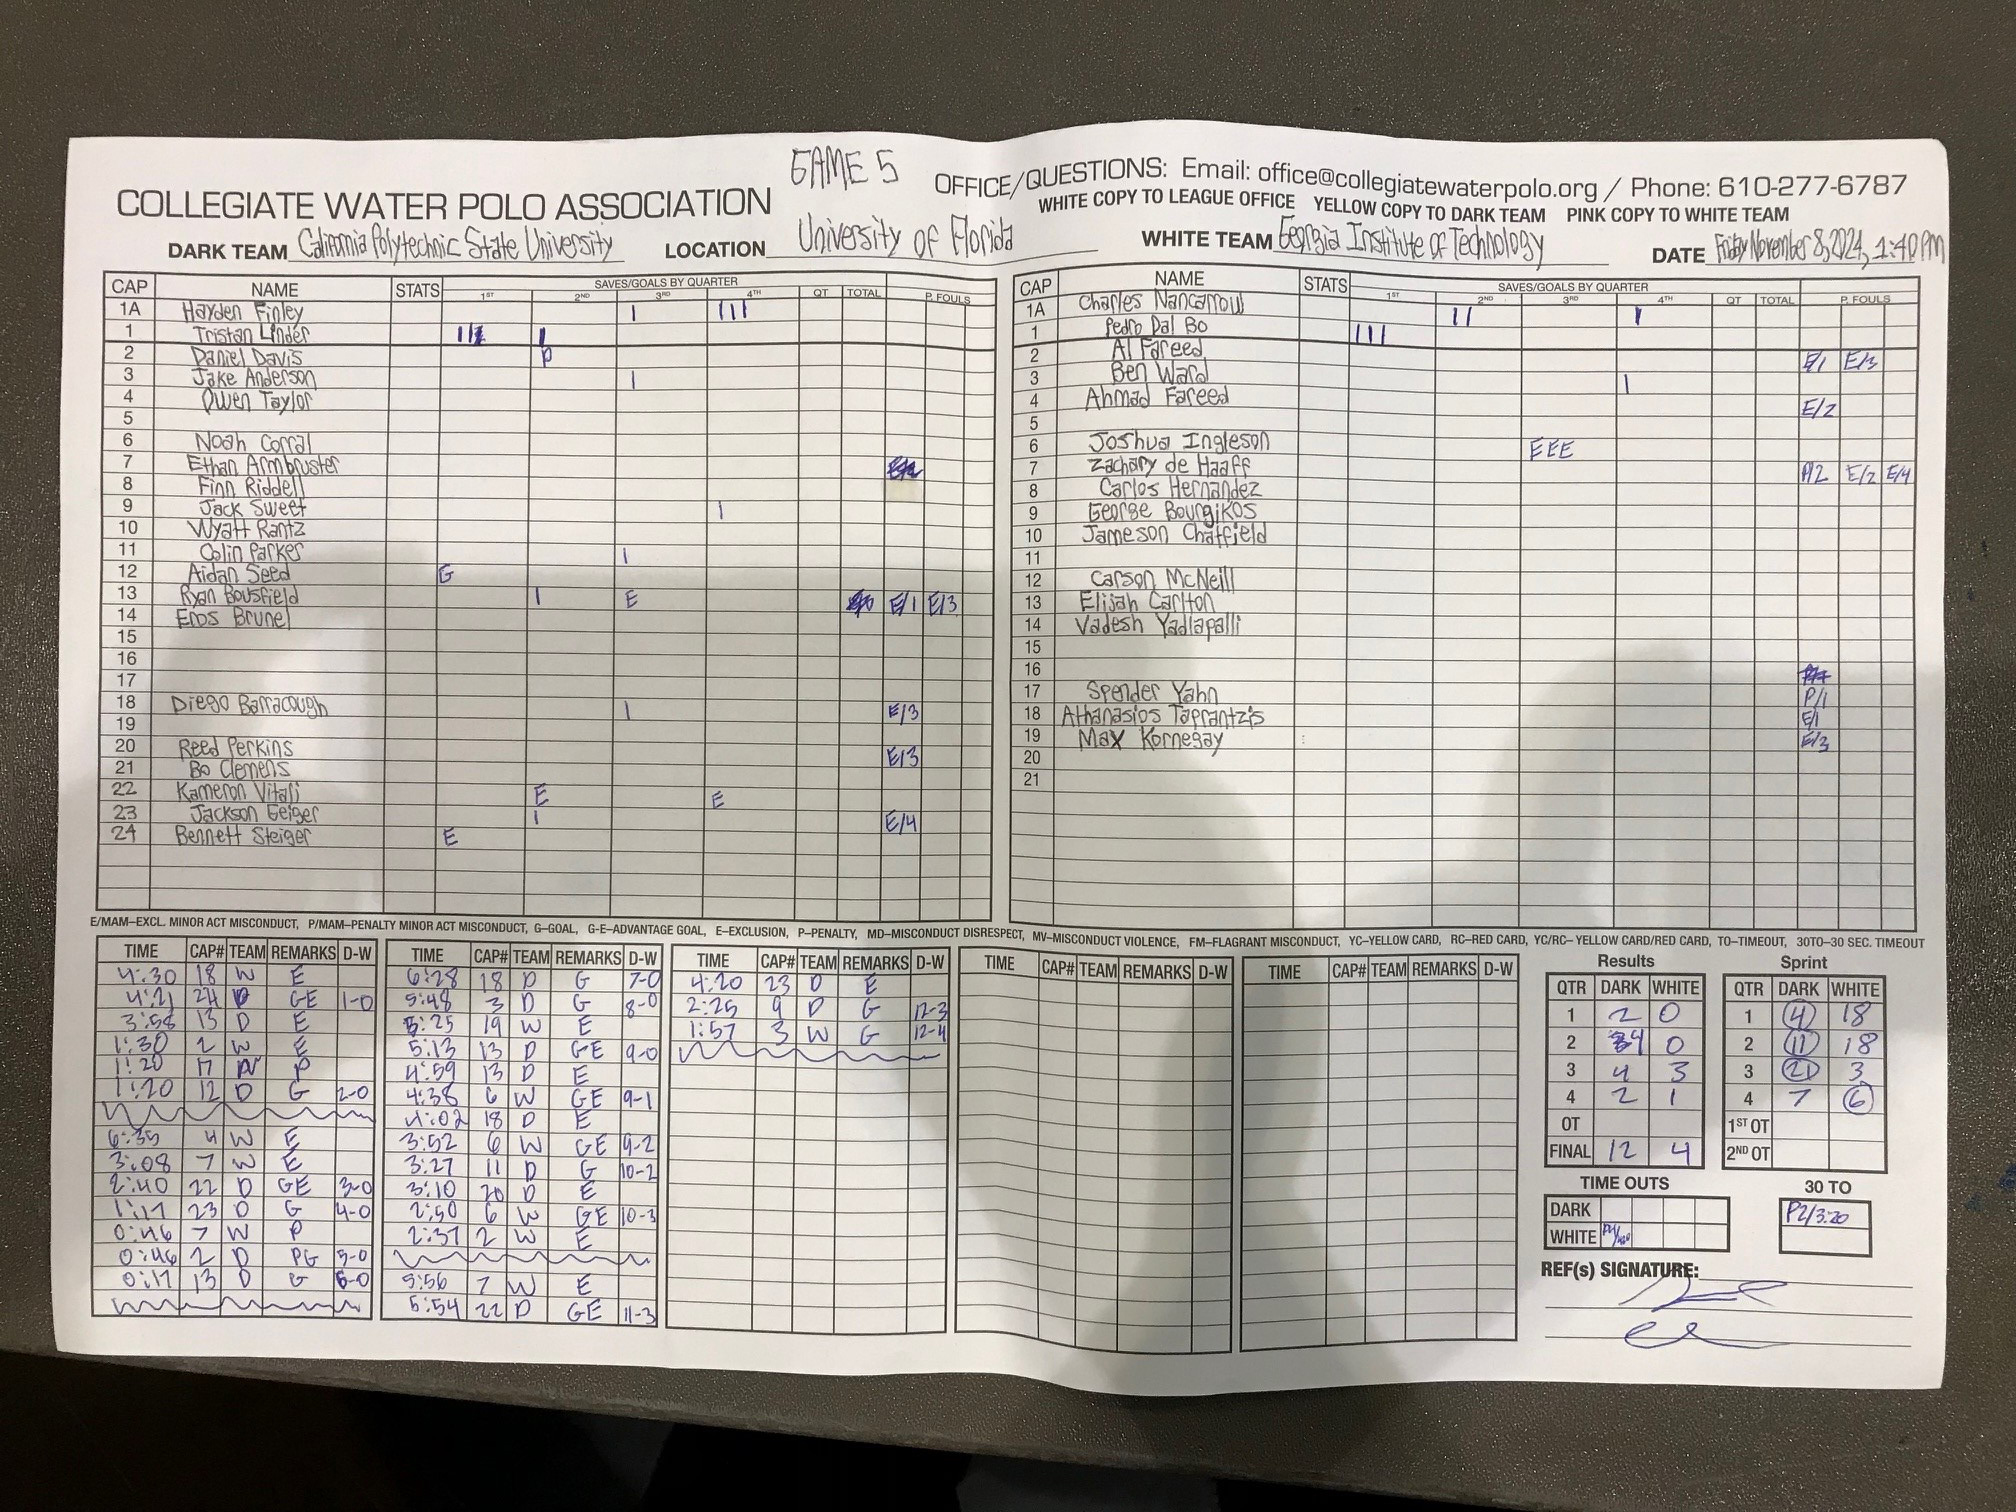 GAME 5
COLLEGIATE WATER POLO ASSOCIATION
OFFICE/QUESTIONS: Email: office@collegiatewaterpolo.org / Phone: 610-277-6787
WHITE COPY TO LEAGUE OFFICE YELLOW COPY TO DARK TEAM PINK COPY TO WHITE TEAM
DARK TEAM California Polytechnic State University LOCATION University of Florida WHITE TEAM Georgia Institute of Technology DATE Friday November 8, 2024, 1:40 PM
CAP NAME STATS SAVES/GOALS BY QUARTER 1ST 2ND 3RD 4TH OT TOTAL P. FOULS
1A Hayden Finley I III
1 Tristan Linder III I
2 Daniel Davis P
3 Jake Anderson I
4 Owen Taylor
5
6 Noah Corral
7 Ethan Armbruster
8 Finn Riddell
9 Jack Sweet I
10 Wyatt Rantz
11 Colin Parker I
12 Aidan Seed G
13 Ryan Bousfield I E E/1 E/3
14 Eros Brunel
15
16
17
18 Diego Barracough I E/3
19
20 Reed Perkins E/3
21 Bo Clemens
22 Kameron Vitali E E
23 Jackson Geiger I E/4
24 Bennett Steiger E
CAP NAME STATS SAVES/GOALS BY QUARTER 1ST 2ND 3RD 4TH OT TOTAL P. FOULS
1A Charles Nancarrow II I
1 Pedro Dal Bo III
2 Al Fareed E/1 E/3
3 Ben Ward I
4 Ahmad Fareed E/2
5
6 Joshua Ingleson EEE
7 Zachary de Haaff P/2 E/2 E/4
8 Carlos Hernandez
9 George Bourgikos
10 Jameson Chatfield
11
12 Carson McNeill
13 Elijah Carlton
14 Vadesh Yadlapalli
15
16
17 Spender Yahn P/1
18 Athanasios Taprantzis E/1
19 Max Kornegay E/3
20
21
E/MAM–EXCL. MINOR ACT MISCONDUCT, P/MAM–PENALTY MINOR ACT MISCONDUCT, G–GOAL, G-E–ADVANTAGE GOAL, E–EXCLUSION, P–PENALTY, MD–MISCONDUCT DISRESPECT, MV–MISCONDUCT VIOLENCE, FM–FLAGRANT MISCONDUCT, YC–YELLOW CARD, RC–RED CARD, YC/RC– YELLOW CARD/RED CARD, TO–TIMEOUT, 30TO–30 SEC. TIMEOUT
TIME CAP# TEAM REMARKS D-W
4:30 18 W E
4:21 24 D GE 1-0
3:58 13 D E
1:30 2 W E
1:20 17 W P
1:20 12 D G 2-0
6:35 4 W E
3:08 7 W E
2:40 22 D GE 3-0
1:17 23 D G 4-0
0:46 7 W P
0:46 2 D PG 5-0
0:17 13 D G 6-0
TIME CAP# TEAM REMARKS D-W
6:28 18 D G 7-0
5:48 3 D G 8-0
5:25 19 W E
5:13 13 D GE 9-0
4:59 13 D E
4:38 6 W GE 9-1
4:02 18 D E
3:52 6 W GE 9-2
3:27 11 D G 10-2
3:10 20 D E
2:50 6 W GE 10-3
2:37 2 W E
5:56 7 W E
5:54 22 D GE 11-3
TIME CAP# TEAM REMARKS D-W
4:20 23 D E
2:25 9 D G 12-3
1:57 3 W G 12-4
TIME CAP# TEAM REMARKS D-W
TIME CAP# TEAM REMARKS D-W
Results
QTR DARK WHITE
1 2 0
2 4 0
3 4 3
4 2 1
OT
FINAL 12 4
Sprint
QTR DARK WHITE
1 4 18
2 11 18
3 21 3
4 7 6
1ST OT
2ND OT
TIME OUTS
DARK
WHITE
30 TO
P2/3:20
REF(s) SIGNATURE: